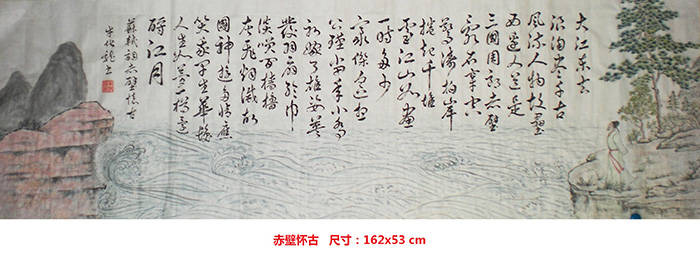 大江东去
浪淘尽千古
风流人物故垒
西边人道是
三國周郎赤壁
乱石穿空
驚涛拍岸
捲起千堆
雪江山如畫
一时多少
豪傑遥想
公瑾当年小乔
初嫁了雄姿英
發羽扇纶巾
谈笑间樯橹
灰飞烟滅故
國神遊多情應
笑我早生華髮
人生如夢一樽還
酹江月
蘇軾詞赤壁懷古
赤壁怀古 尺寸：162x53 cm